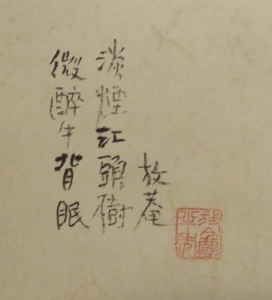 淡煙江頭樹
微醉牛背眠
牧菴